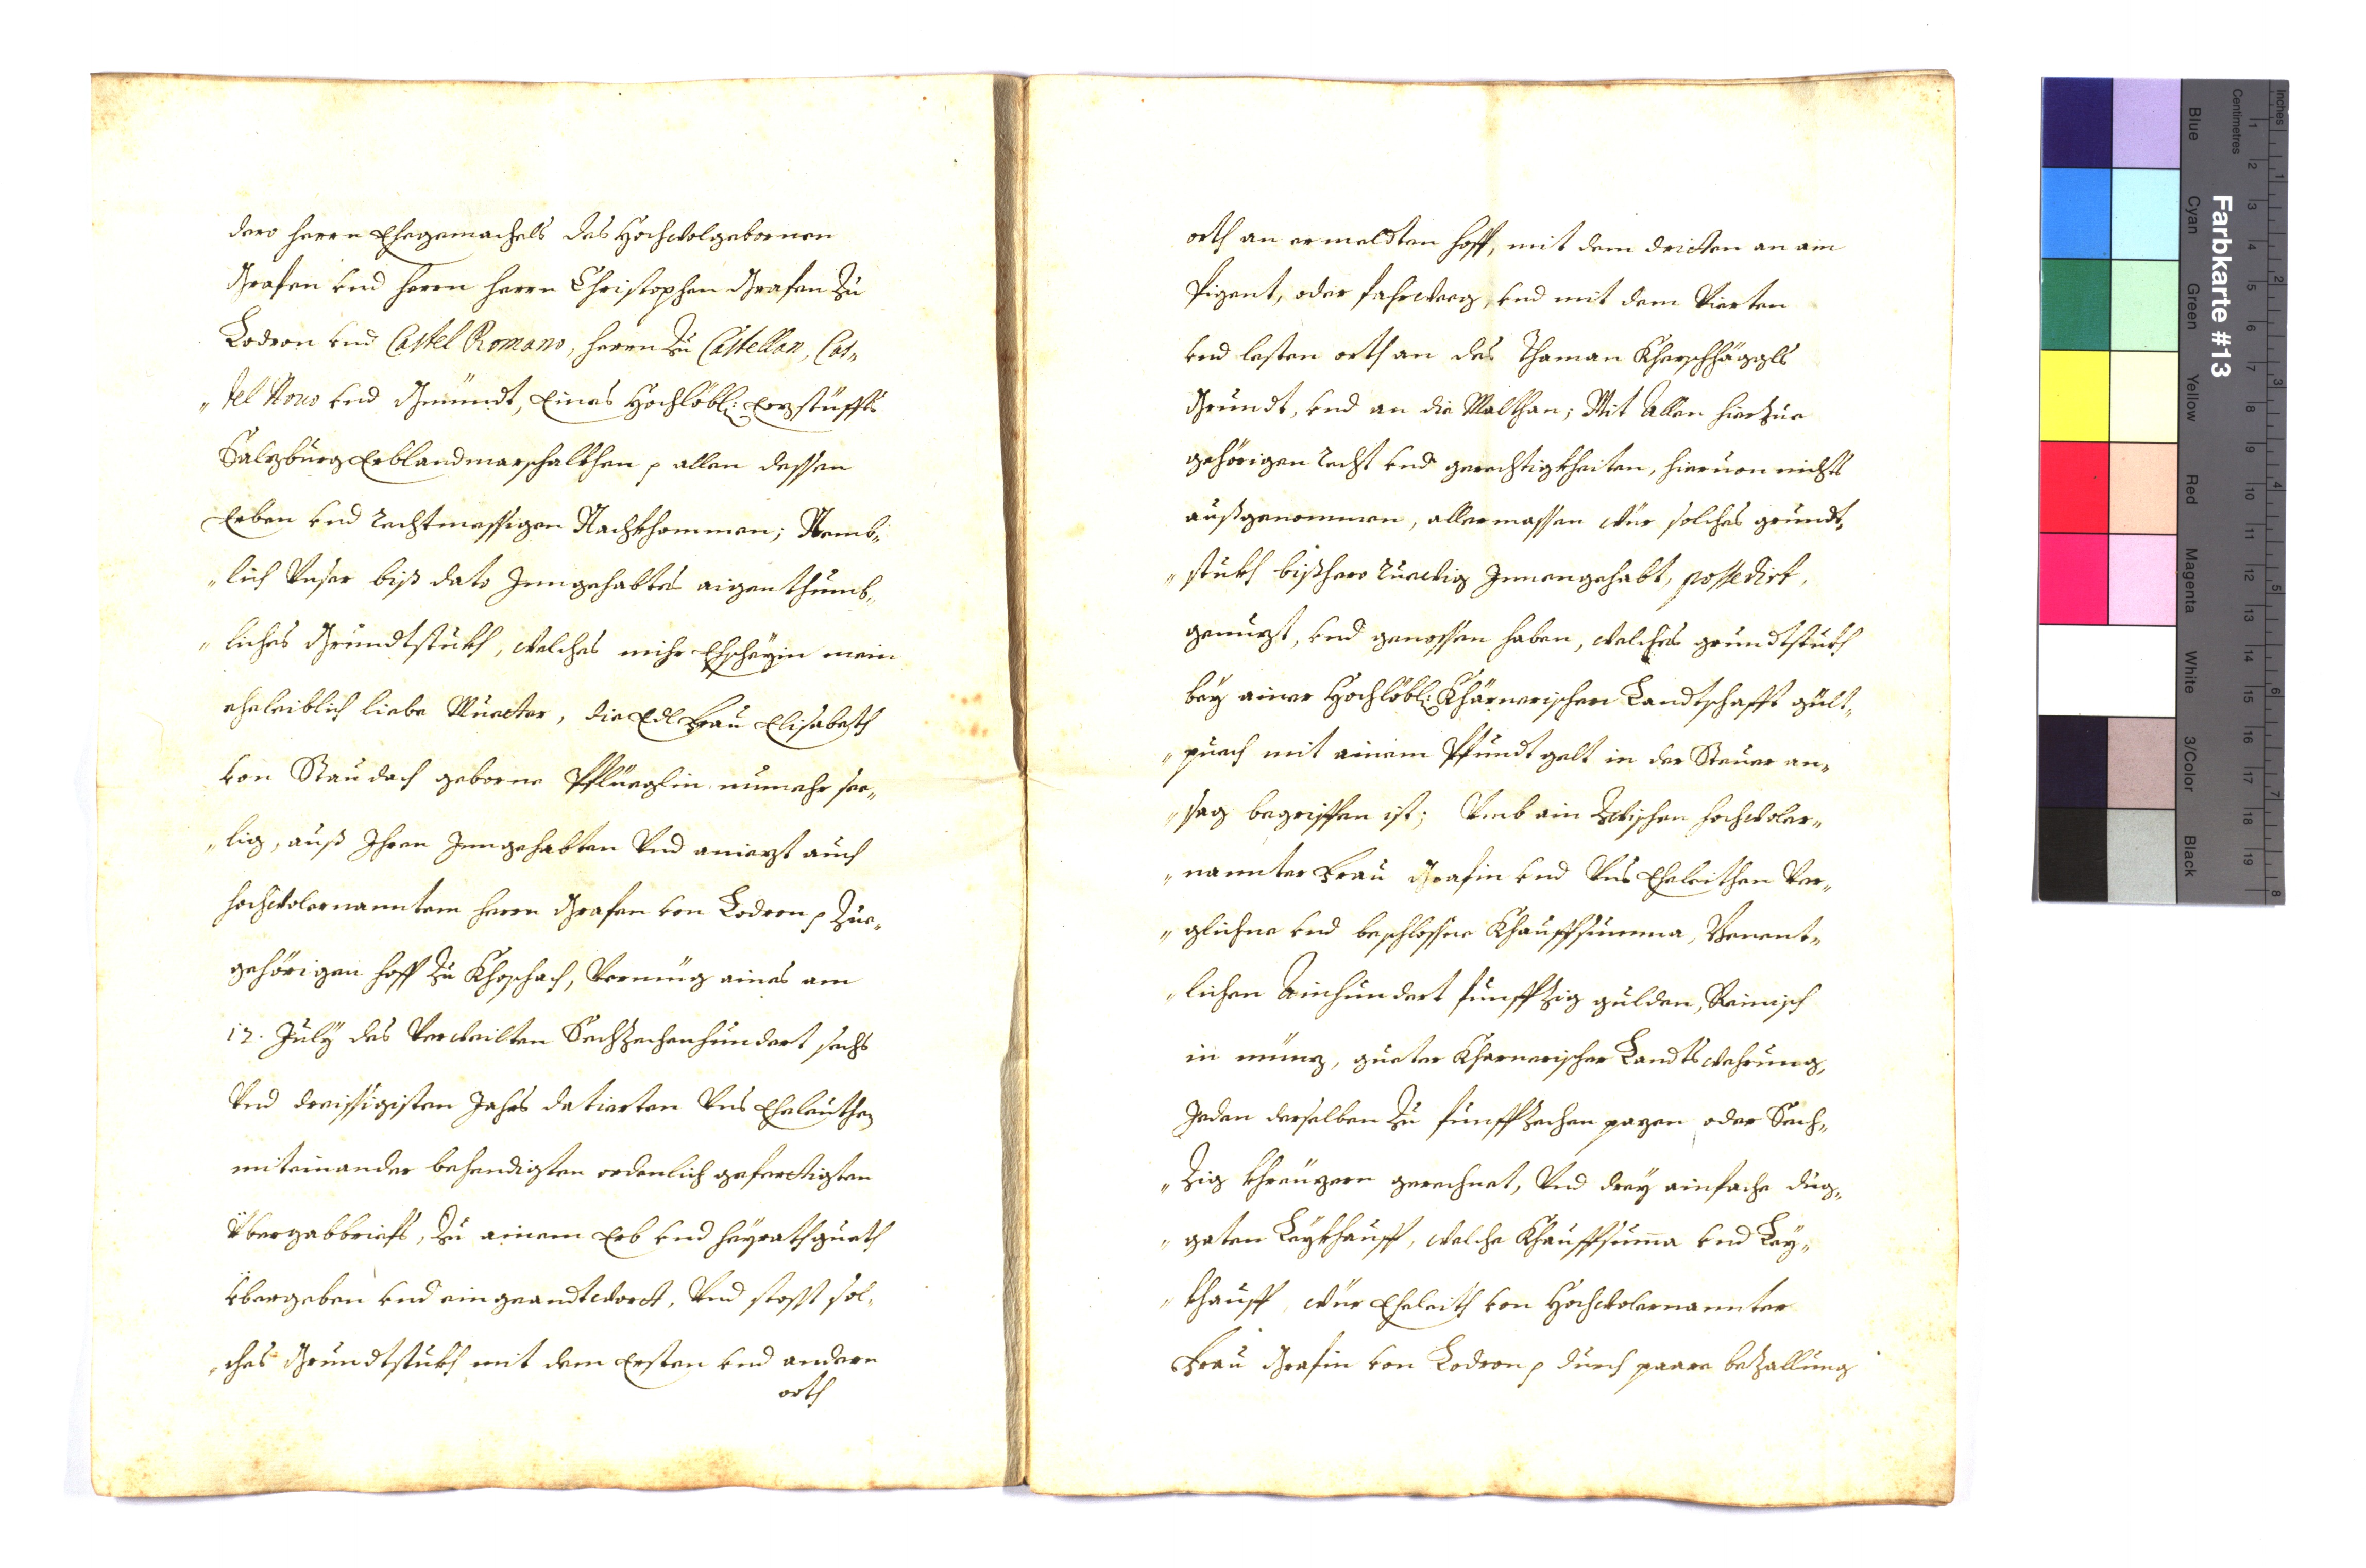 dero herrn Ehegemachels des Hochwolgebornen
Grafen vnd herrn herrn Christophen Grafen Zu
Lodron vnd Castel Romano, herrn Zu Castellan, Cas„
„tel Nouo vnd Gmündt, Eines Hochlöbl: Erzstüffts
Salzburg Erblandmarschalkhen p allen dessen
Erben vnd rechtmessigen Nachkhommen; Nemb„
„lich Vnser biß dato Jnngehabtes aigenthumb„
„liches Grundtstukh, welches mihr mein
eheleiblich liebe Muetter, die Edl Frau Elisabeth
von Staudach geborne Pflüeglin nunmehr see„
„lig, auß Jhren Jnngehabten Vnd aniezt auch
hochwolernanntem herrn Grafen von Lodron p Zue„
gehörigen hoff Zu Khoschach, Vermüg aines am
12. July des Verweilten Sechzechenhundert sechs
Vnd dreissigisten Jahrs datierten Vns Eheleuthen
miteinander behendigten ordenlich gefertigten
Vbergabbriefs, Zu ainem Erb vnd heyrathgueth
vbergeben vnd eingeandtwort, Vnd stosst sol„
„ches Grundtstukh mit dem Ersten vnd andern
orth
orth an ermeldten hoff, mit dem dritten an ain
Pigent, oder fahrweeg, vnd mit dem Vierten
vnd lesten orth an des Thaman Kherschhäggls
Grundt, vnd an die Malthan; Mit Allen hierZue
gehörigen recht vnd gerechtigkheiten, hieruon nichts
außgenommen, allermassen wür solches grundt„
„stukh bißhero ruewig Jnnengehabt, possedirt,
genuzt, vnd genossen haben, welches grundtstukh
bey ainer Hochlöbl: Khärnerischen Landtschafft gült„
„puech mit ainem Pfundt gelt in der Steuer an„
„sag begriffen ist; Vmb ain Zwischen hochwoler„
„nannter Frau Grafin vnd Vns Eheleithen Ver„
„glichne vnd beschlossne Khauffsumma, Benent„
„lichen Ainhundert funffzig gulden, Reinisch
in münz, gueter Kharnerischer Landtswehrung,
Jeden derselben Zu funffzechen pazen oder Sech„
„Zig khreuzern gerechnet, Vnd drey ainfache dug„
„gaten Leykhauff, welche Khauffsuma vnd Ley„
„khauff, wür Eheleith von Hochwolernannter
Frau Grafin von Lodron p durch paare beZallung
Farbkarte #13
Inches
Centimetres
1 2 3 4 5 6 7 8
1 2 3 4 5 6 7 8 9 10 11 12 13 14 15 16 17 18 19
Blue
Cyan
Green
Yellow
Red
Magenta
White
3/Color
Black